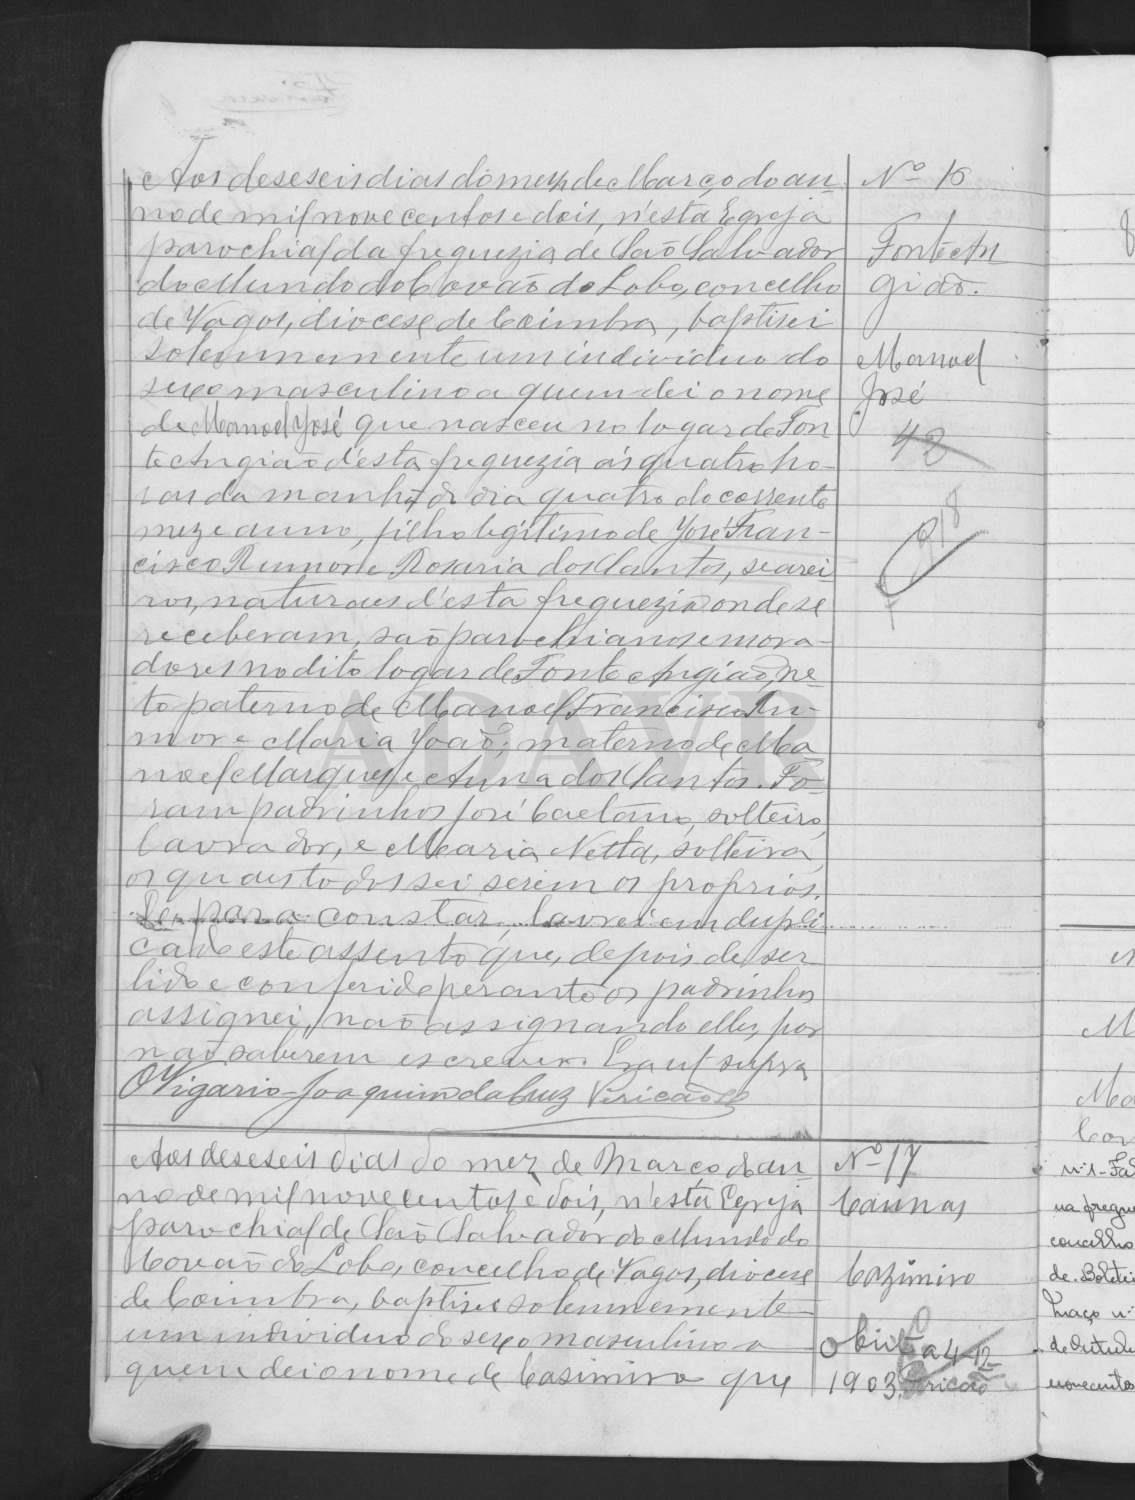 Aos deseseis dias do mez de Março do an-
no de mil nove centos e dois, n'esta Egreja
parochial da freguezia de São Salvador
do Mundo do Covão do Lobo, concelho
de Vagos, diocese de Coimbra, baptisei
solemnemente um individuo do
sexo masculino a quem dei o nome
de Manoel José que nasceu no logar de Fon
te Angião d'esta freguezia ás quatro ho-
ras da manhã do dia quatro do corrente
mez e anno, filho legitimo de José Fran-
cisco Rumor e Rosaria dos Santos, searei
ros, naturaes d'esta freguezia onde se
receberam, são parochianos e mora-
dores no dito logar de Fonte Angião, ne-
to paterno de Manoel Francisco Ru-
mor e Maria João; materno de Ma
noel Marques e Anna dos Santos. Fo-
ram padrinhos José Caetano, solteiro,
lavrador, e Maria Netta, solteira,
os quaes todos sei serem os proprios.
E para constar, lavrei em dupli
cado este assento que, depois de ser
lido e conferido perante os padrinhos
assignei, não assignando elles, por
não saberem escrever. Era ut supra
O Vigario Joaquim da Cruz Pericão
Nº 16
Fonte An
gião.
Manoel
José
42
Aos deseseis dias do mez de Março do an-
no de mil nove centos e dois, n'esta Egreja
parochial de São Salvador do Mundo do
Covão do Lobo, concelho de Vagos, diocese
de Coimbra, baptisei solemnemente
um individuo do sexo masculino a
quem dei o nome de Casimiro que
Nº 17
Cazimiro
Obiit a 4-12
1903. Pericão
ADAVR